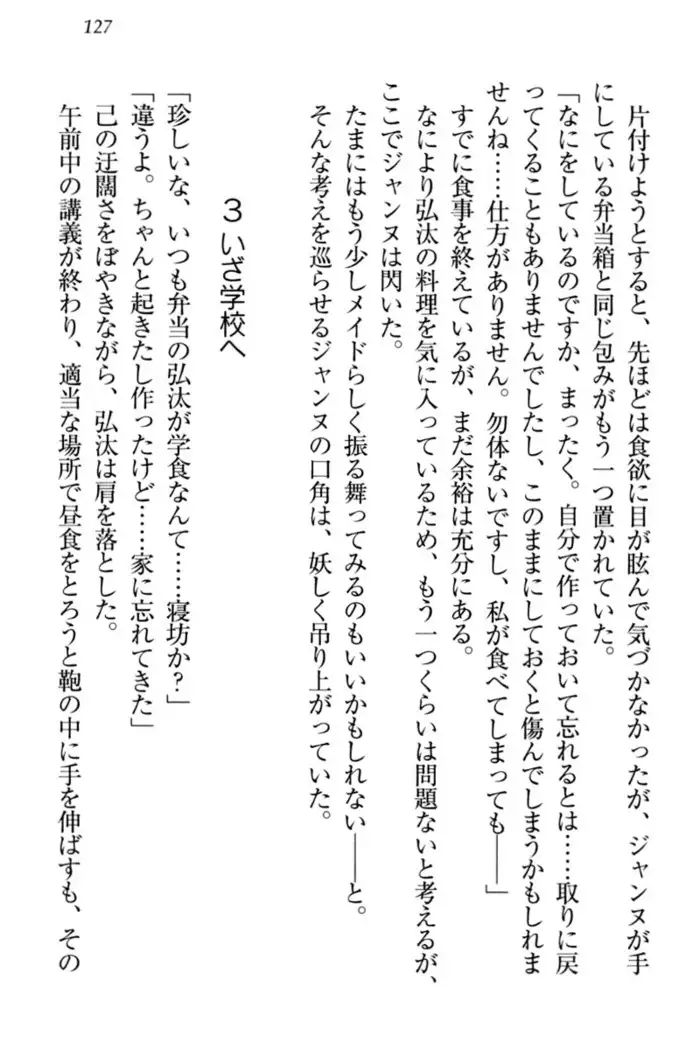 127
片付けようとすると、先ほどは食欲に目が眩んで気づかなかったが、ジャンヌが手
にしている弁当箱と同じ包みがもう一つ置かれていた。
「なにをしているのですか、まったく。自分で作っておいて忘れるとは……取りに戻
ってくることもありませんでしたし、このままにしておくと傷んでしまうかもしれま
せんね……仕方がありません。勿体ないですし、私が食べてしまっても――」
すでに食事を終えているが、まだ余裕は充分にある。
なにより弘汰の料理を気に入っているため、もう一つくらいは問題ないと考えるが、
ここでジャンヌは閃いた。
たまにはもう少しメイドらしく振る舞ってみるのもいいかもしれない――と。
そんな考えを巡らせるジャンヌの口角は、妖しく吊り上がっていた。
3 いざ学校へ
「珍しいな、いつも弁当の弘汰が学食なんて……寝坊か？」
「違うよ。ちゃんと起きたし作ったけど……家に忘れてきた」
己の迂闊さをぼやきながら、弘汰は肩を落とした。
午前中の講義が終わり、適当な場所で昼食をとろうと鞄の中に手を伸ばすも、その